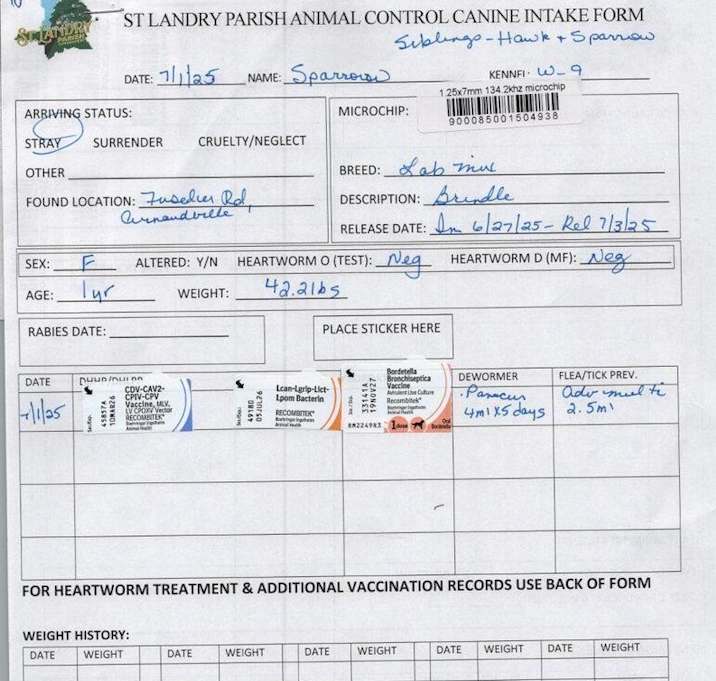 ST LANDRY
PARISH
ST LANDRY PARISH ANIMAL CONTROL CANINE INTAKE FORM
Siblings - Hawk + Sparrow
DATE: 7/1/25 NAME: Sparrow KENNEL: W-9
1.25x7mm 134.2khz microchip
ARRIVING STATUS: MICROCHIP: 900085001504938
STRAY SURRENDER CRUELTY/NEGLECT
OTHER BREED: Lab mix
FOUND LOCATION: Fuselier Rd, DESCRIPTION: Brindle
Arnaudville RELEASE DATE: In 6/27/25 - Rel 7/3/25
SEX: F ALTERED: Y/N HEARTWORM O (TEST): Neg HEARTWORM D (MF): Neg
AGE: 1yr WEIGHT: 42.2lbs
RABIES DATE: PLACE STICKER HERE
DATE DEWORMER FLEA/TICK PREV.
7/1/25 Panacur Adv multi
4ml X 5 days 2.5ml
CDV-CAV2-
CPIV-CPV
Vaccine, MLV,
LV CPOXV Vector
RECOMBITEK
Boehringer Ingelheim
Animal Health
45857A
10MAR26
Lcan-Lgrip-Lict-
Lpom Bacterin
RECOMBITEK
Boehringer Ingelheim
Animal Health
49180
05JUL26
Bordetella
Bronchiseptica
Vaccine
Avirulent Live Culture
Recombitek
Boehringer Ingelheim
Animal Health
33141A
19NOV27
1 dose Oral
Bordetella
FOR HEARTWORM TREATMENT & ADDITIONAL VACCINATION RECORDS USE BACK OF FORM
WEIGHT HISTORY:
DATE WEIGHT DATE WEIGHT DATE WEIGHT DATE WEIGHT DATE WEIGHT